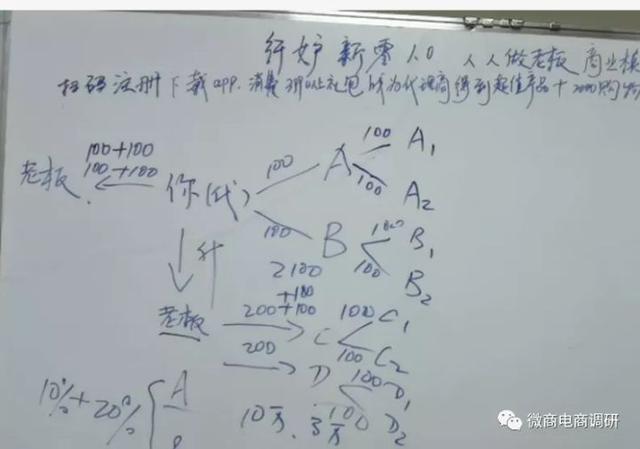 纤妒新零1.0 人人做老板 商业模
扫码注册下载app.消费 礼包成为代理商得到超值产品+2000购物
100+100
100+100
老板
你(代)
100 A 100 A1
100 A2
100 B 100 B1
100 B2
2100
+100
升
老板 200+100 C 100 C1
100 C2
200 D 100 D1
100 D2
10%+20% A
10万. 3万
微商电商调研